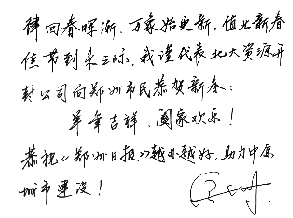 律回春晖渐，万象始更新，值此新春
佳节到来之际，我谨代表北大资源开
封公司向郑州市民恭贺新春：
羊年吉祥，阖家欢乐！
恭祝《郑州日报》越办越好，助力中原
城市建设！